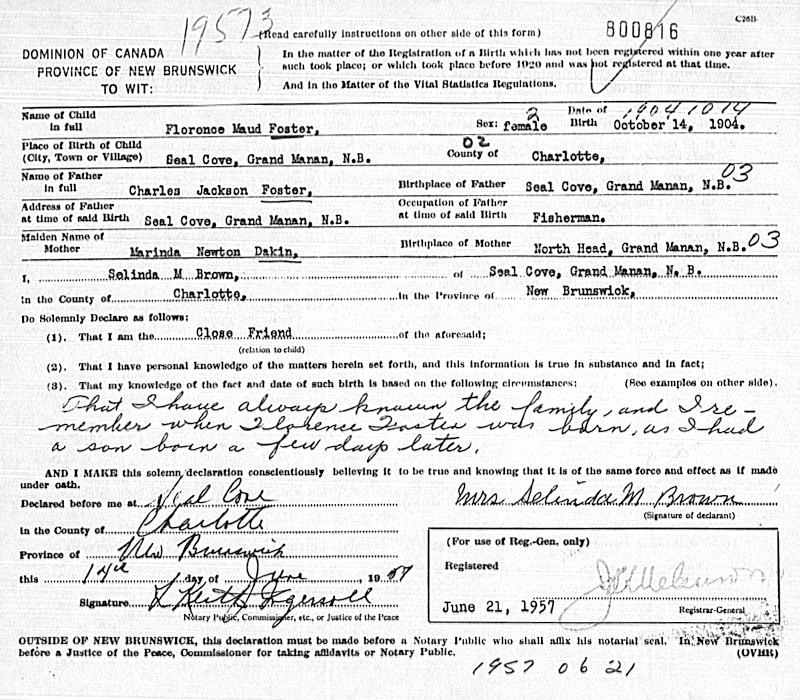 19573 (Read carefully instructions on other side of this form) 800816 C26B
DOMINION OF CANADA
PROVINCE OF NEW BRUNSWICK
TO WIT:
In the matter of the Registration of a Birth which has not been registered within one year after
such took place; or which took place before 1920 and was not registered at that time.
And in the Matter of the Vital Statistics Regulations.
Name of Child in full Florence Maud Foster, Sex: female 2 Date of Birth October 14, 1904. 19041014
Place of Birth of Child (City, Town or Village) Seal Cove, Grand Manan, N.B. 02 County of Charlotte,
Name of Father in full Charles Jackson Foster, Birthplace of Father Seal Cove, Grand Manan, N.B. 03
Address of Father at time of said Birth Seal Cove, Grand Manan, N.B. Occupation of Father at time of said Birth Fisherman.
Maiden Name of Mother Marinda Newton Dakin, Birthplace of Mother North Head, Grand Manan, N.B. 03
I, Selinda M Brown, of Seal Cove, Grand Manan, N. B.
in the County of Charlotte, in the Province of New Brunswick,
Do Solemnly Declare as follows:
(1). That I am the Close Friend of the aforesaid;
(relation to child)
(2). That I have personal knowledge of the matters herein set forth, and this information is true in substance and in fact;
(3). That my knowledge of the fact and date of such birth is based on the following circumstances: (See examples on other side).
That I have always known the family, and I re-
member when Florence Foster was born, as I had
a son born a few days later.
AND I MAKE this solemn declaration conscientiously believing it to be true and knowing that it is of the same force and effect as if made
under oath.
Declared before me at Seal Cove
Mrs Selinda M Brown
(Signature of declarant)
in the County of Charlotte
Province of New Brunswick
this 14th day of June, 1957
Signature L Keith Ingersoll
Notary Public, Commissioner, etc., or Justice of the Peace
(For use of Reg.-Gen. only)
Registered
June 21, 1957 Registrar-General
OUTSIDE OF NEW BRUNSWICK, this declaration must be made before a Notary Public who shall affix his notarial seal. In New Brunswick
before a Justice of the Peace, Commissioner for taking affidavits or Notary Public. (OVER)
1957 06 21